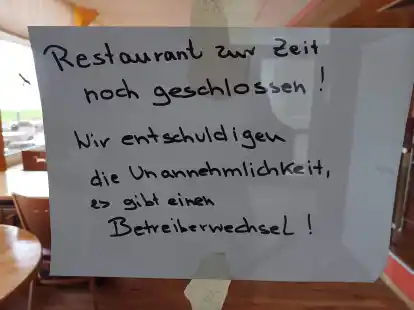 Restaurant zur Zeit
noch geschlossen!
Wir entschuldigen
die Unannehmlichkeit,
es gibt einen
Betreiberwechsel!